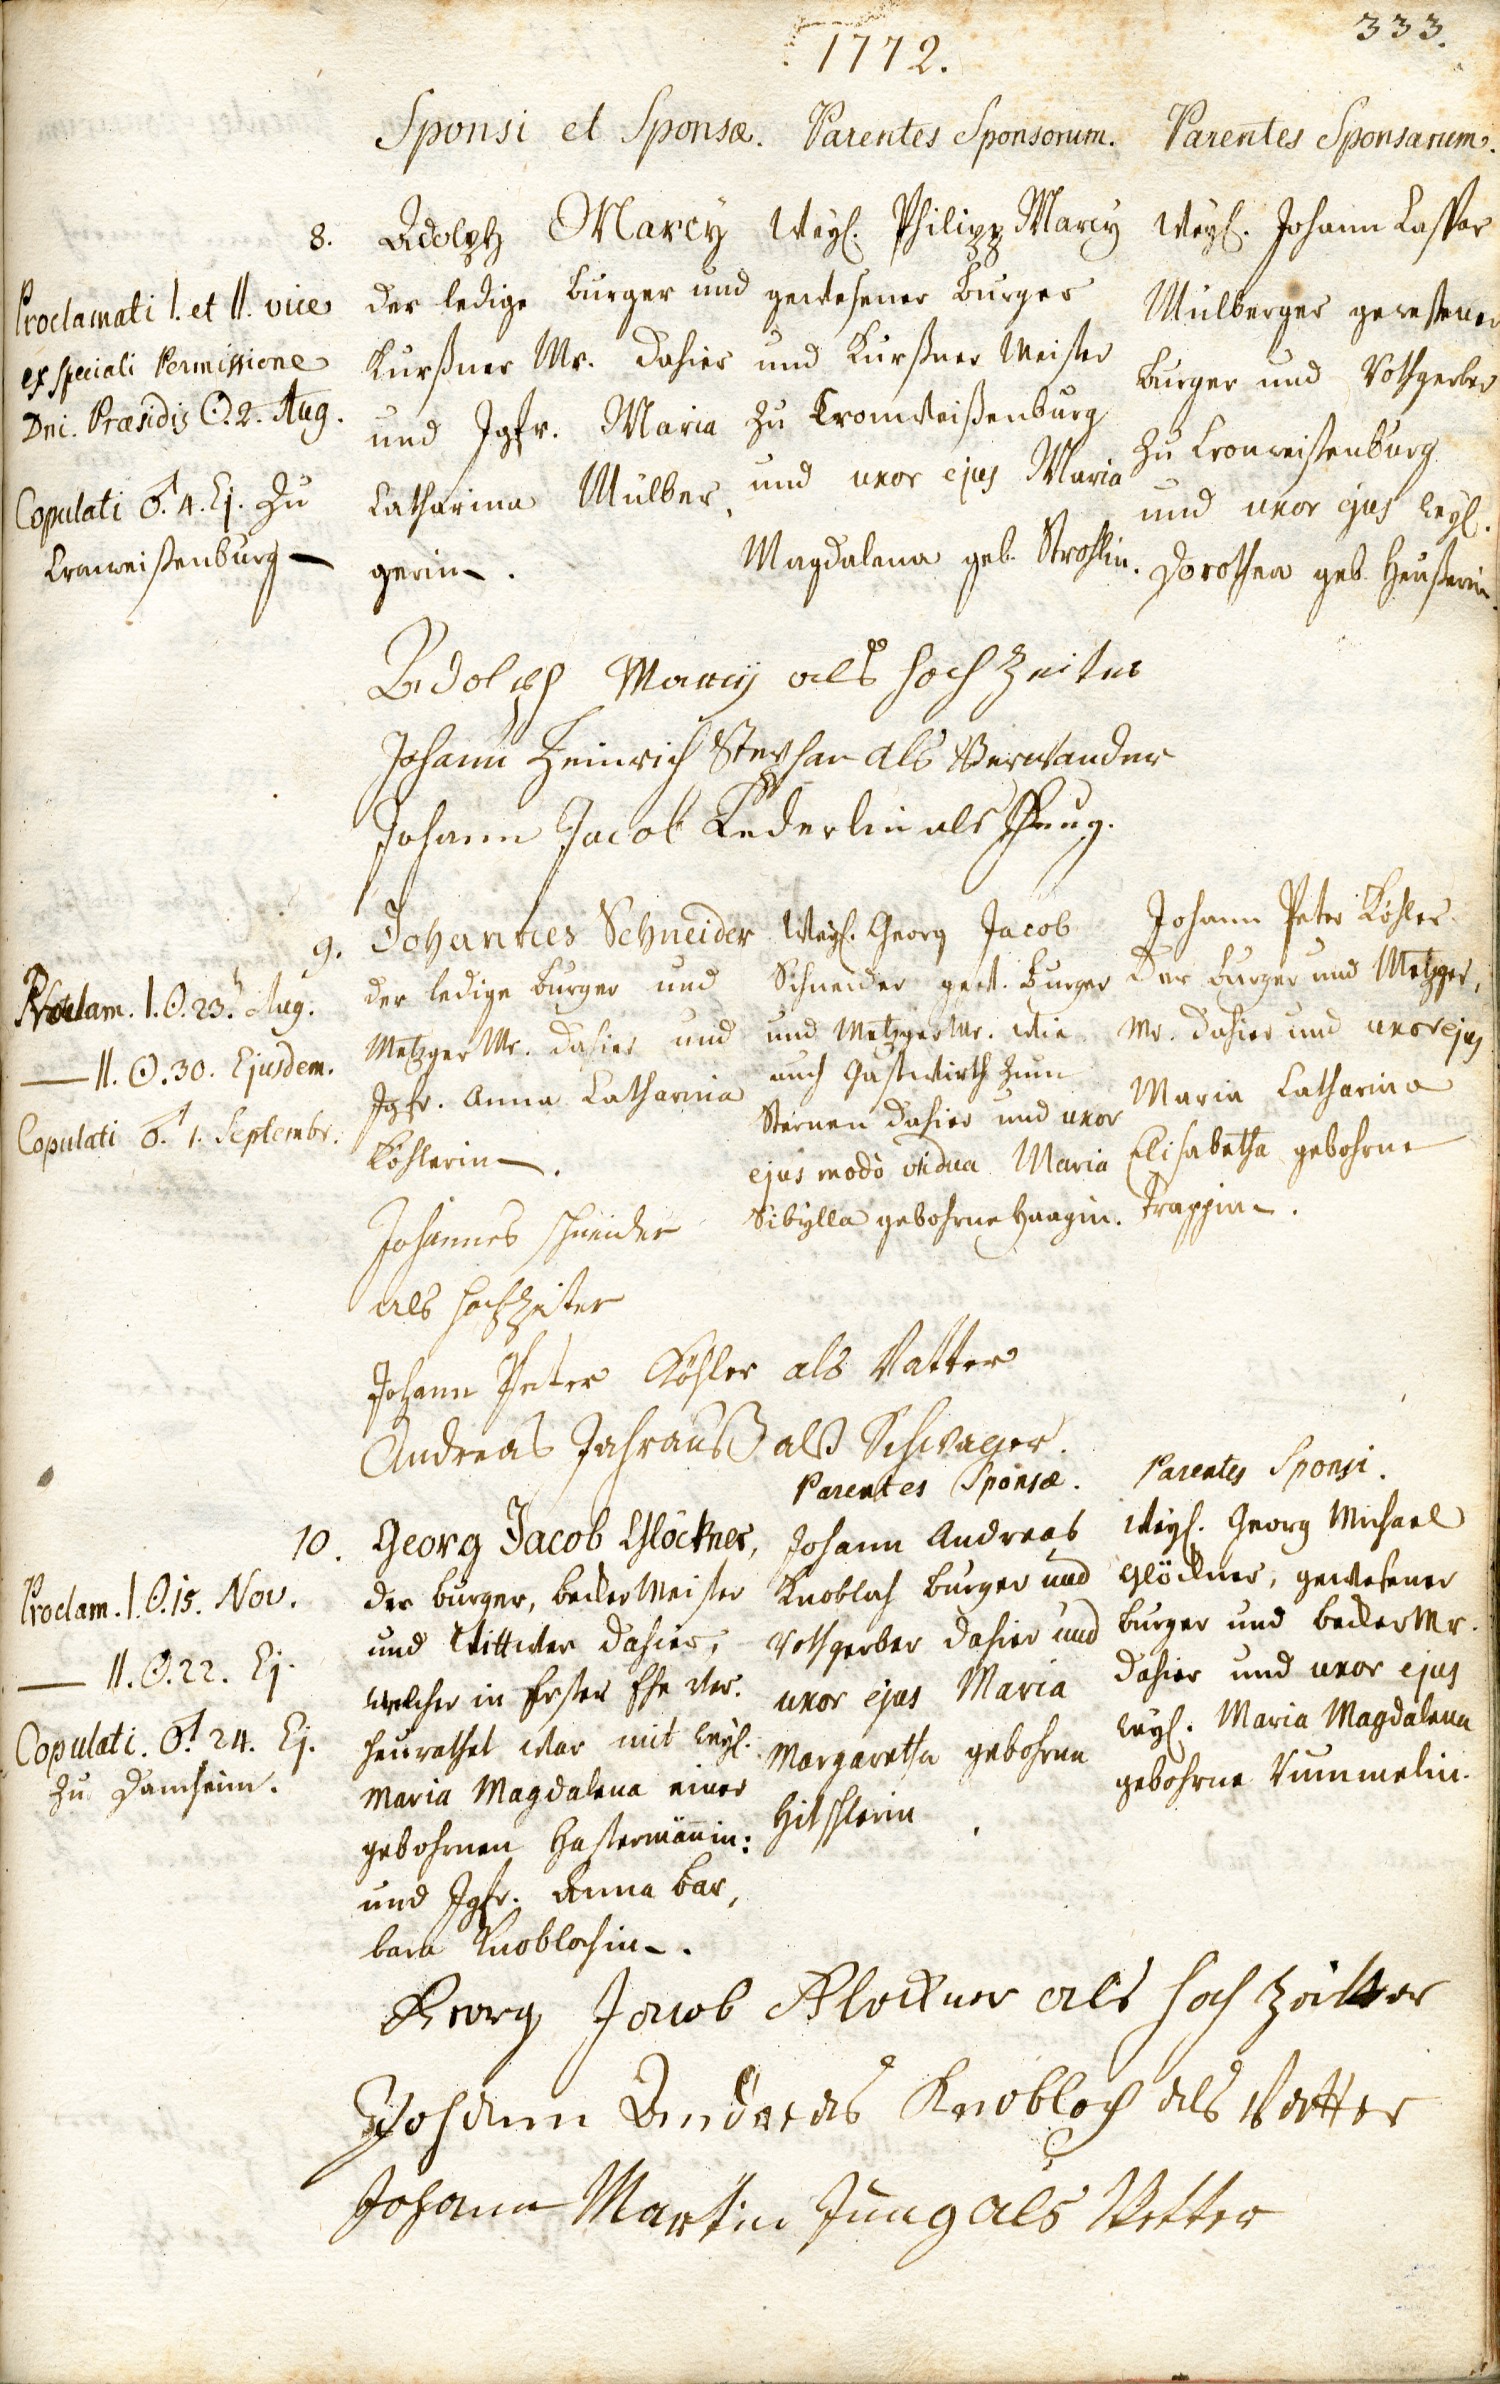 333.
1772.
Sponsi et Sponsæ. Parentes Sponsorum. Parentes Sponsarum.
8.
Proclamati I. et II. vice
ex speciali Permissione
Dni. Præsidis ☉. 2. Aug.
Copulati ♂. 4. Ej. zu
Cronweißenburg
Adolph Marcy
der ledige Burger und
Kurßner Mr. dahier
und Jgfr. Maria
Catharina Mülber,
gerin.
Weyl. Philipp Marcy
gewesener Burger
und Kurßner Meister
zu Cronweißenburg
und uxor ejus Maria
Magdalena geb. Strohlin.
Weyl. Johann Caspar
Mülberger gewesener
Burger und Rothgerber
zu Cronweißenburg
und uxor ejus weyl.
Dorothea geb. Heußerin.
Adolph Marcij als hochzeiter
Johann Heinrich Stephan als Verwander
Johann Jacob Eederlin als Zeug.
9.
Proclam. I. ☉. 23. Aug.
— II. ☉. 30. Ejusdem.
Copulati ♂. 1. Septembr.
Johannes Schneider
der ledige Burger und
Metzger Mr. dahier und
Jgfr. Anna Catharina
Köhlerin.
Weyl. Georg Jacob
Schneider gew. Burger
und Metzger Mr. wie
auch Gastwirth zum
Sternen dahier und uxor
ejus modò vidua Maria
Sibylla gebohrne Haagin.
Johann Peter Köhler
Der Burger und Metzger,
Mr. dahier und uxor ejus
Maria Catharina
Elisabetha gebohrne
Trappin.
Johannes schneider
als hochzeiter
Johann Peter Köhler als Vatter
Andreas Jahrauß alß Schwager.
10.
Proclam. I. ☉. 15. Nov.
— II. ☉. 22. Ej.
Copulati. ♂. 24. Ej.
zu Damheim.
Georg Jacob Glöckner,
der burger, becker Meister
und Wittwer dahier,
welcher in Erster Ehe ver.
heurathet war mit weyl.
Maria Magdalena einer
gebohrnen Hastermännin:
und Jgfr. Anna Bar,
bara Knoblochin.
Parentes Sponsæ.
Johann Andreas
Knobloch Burger und
Rothgerber dahier und
uxor ejus Maria
Margaretha gebohrne
Hitschlerin
Parentes Sponsi.
Weyl. Georg Michael
Glöckner, gewesener
burger und becker Mr.
dahier und uxor ejus
weyl. Maria Magdalena
gebohrne Rummelin.
Georg Jacob Glockner als hoch zeitter
Johann Andreas Knobloch als Vatter
Johann Martin Jung als Vetter